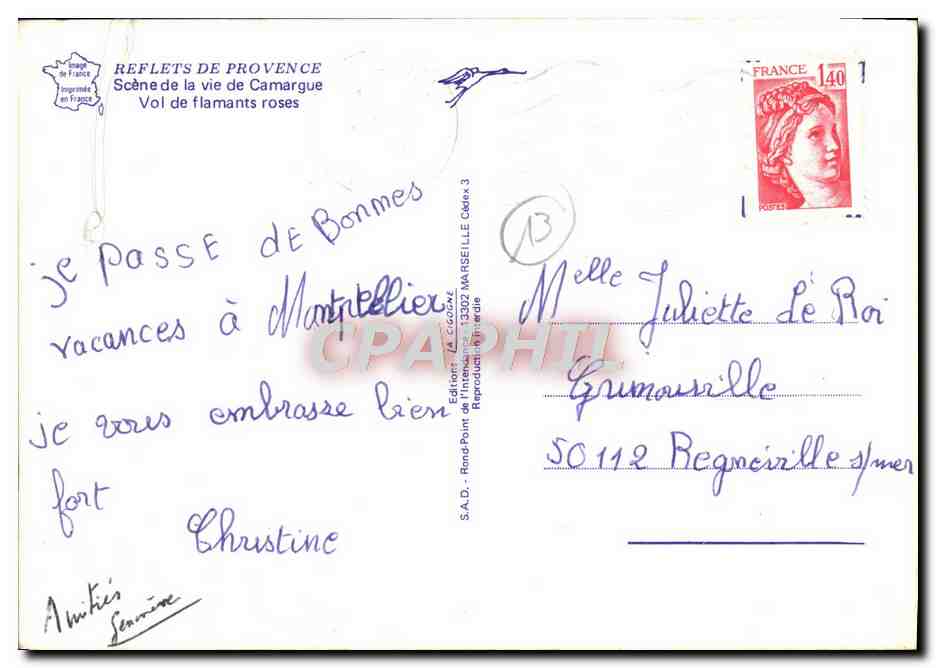 Image
de France
Imprimée
en France
REFLETS DE PROVENCE
Scène de la vie de Camargue
Vol de flamants roses
FRANCE
1,40
POSTES
13
je PASSE dE BonmES
vacances à Montpellier
je vous embrasse bien
fort
Christine
Amitiés
Geneviève
Editions LA CIGOGNE
S.A.D. - Rond-Point de l'Intendance - 13302 MARSEILLE Cédex 3
Reproduction interdite
CPAPHIL
Melle Juliette Le Roi
Grimouville
50112 Regnéville s/mer